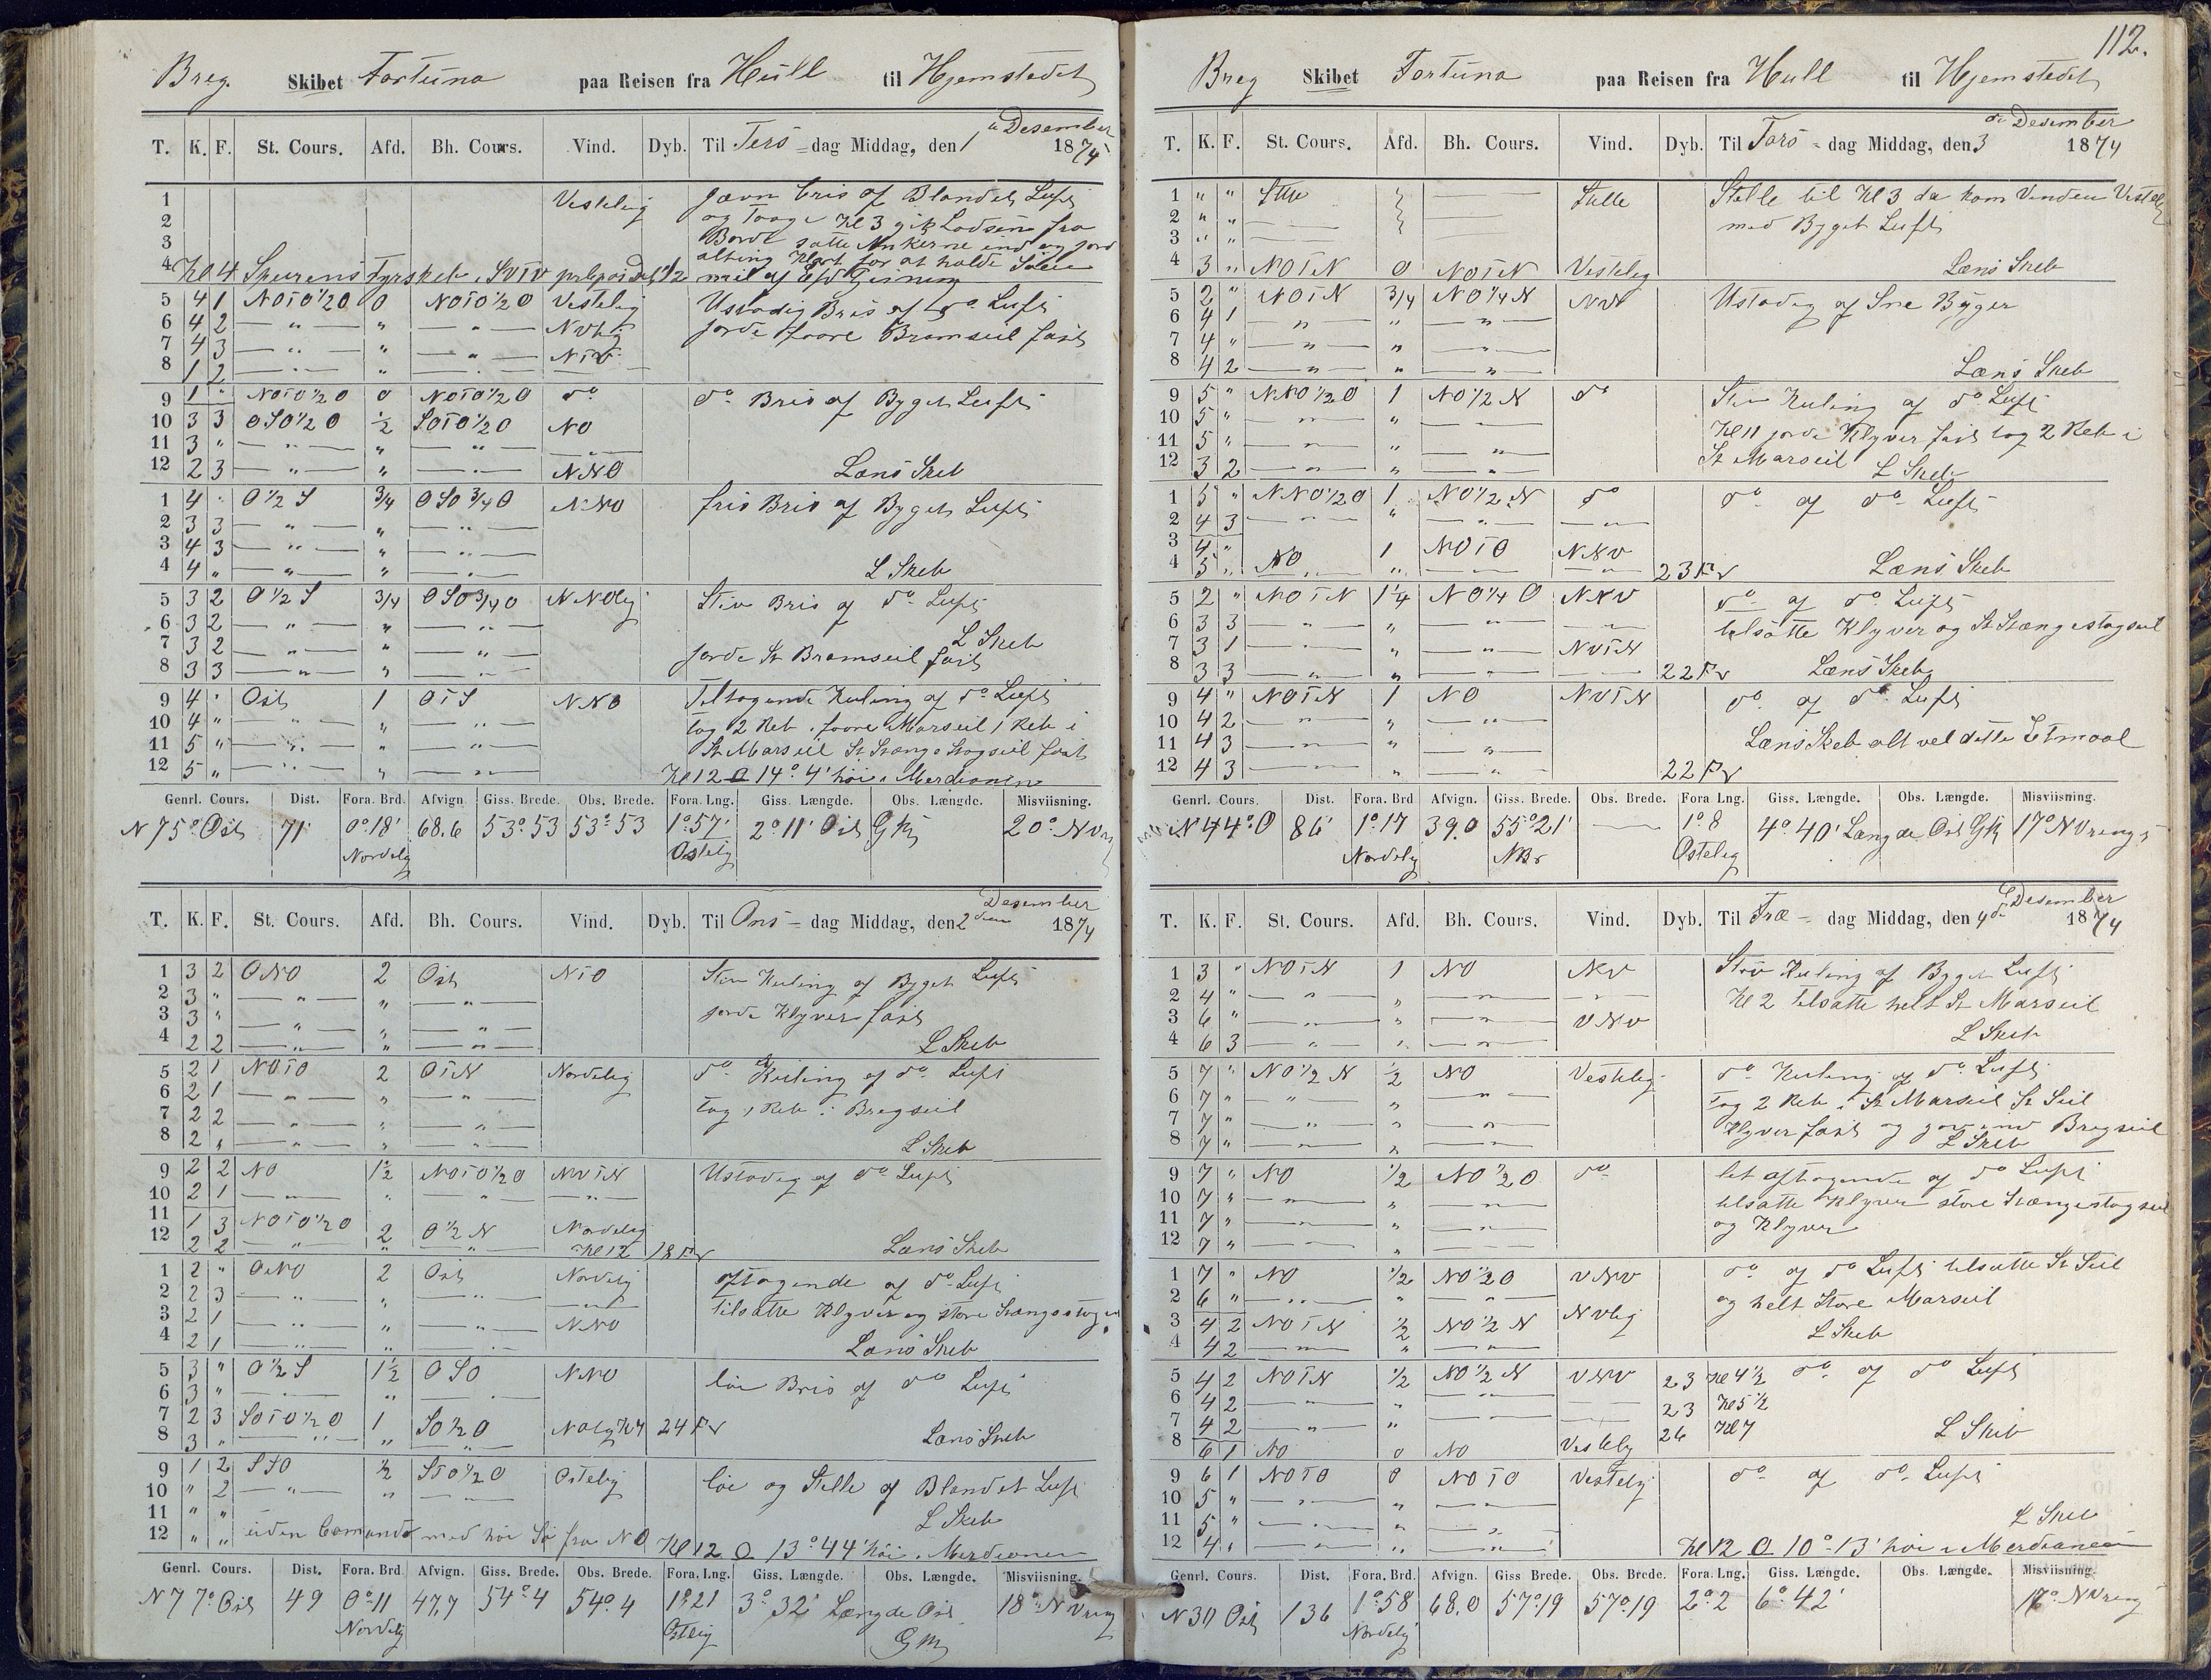 Breg. Skibet Fortuna paa Reisen fra Hull til Hjemstedet
T. K. F. St. Cours. Afd. Bh. Cours. Vind. Dyb. Til Ters-dag Middag, den 1 Desember 1874
1 Vestelig jævn bris af Blandet Luft
2 og Taage Kl 3 gik Lodsen fra
3 Borde satte Ankerne ind og
4 Kl 4 Fyrskeb i SVTV
alting klart for at holde Søen
5 4 1 NOTO 1/2 O 0 NOTO 1/2 O Vestelig Ustadig Bris af do Luft
6 4 2 — " — " — " — NVlig jorde foore Bramseil fast
7 4 3 — " — " — " — NTV
8 1 2 — " — " — " —
9 1 " NOTO 1/2 O 0 NOTO 1/2 O do do Bris af Byget Luft
10 3 3 OSO 1/2 O 1/2 SOTO 1/2 O NO
11 3 " — " — " — " —
12 2 3 — " — " — " — NNO Læns Skeb
1 4 " O 1/2 S 3/4 OSO 3/4 O NNO fris Bris af Byget Luft
2 3 3 — " — " — " —
3 4 3 — " — " — " —
4 4 " — " — " — " — L Skeb
5 3 2 O 1/2 S 3/4 OSO 3/4 O NNOlig Stiv Bris af do Luft
6 3 2 — " — " — " —
7 3 2 — " — " — " — L Skeb
8 3 3 — " — " — " — jorde St Bramseil fast
9 4 " Ost 1 OTS NNO Tiltagende Kuling af do Luft
10 4 " — " — " — " — tog 2 Reb i foore Marseil 1 Reb i
11 5 " — " — " — " — St Marseil St Stange Stagseil fast
12 5 " — " — " — " — Kl 12 14° 4' høi i Merdianen
Genrl. Cours. Dist. Fora. Brd. Afvign Giss. Brede. Obs. Brede. Fora. Lng. Giss. Længde. Obs. Længde. Misviisning.
N 75° Ost 71' 0° 18' 68.6 53° 53 53° 53 1° 57' 2° 11' Ost 20° N
Nordelig Ostelig
T. K. F. St. Cours. Afd. Bh. Cours. Vind. Dyb. Til Ons-dag Middag, den 2den Desember 1874
1 3 2 ONO 2 Ost NTO Stiv Kuling af Byget Luft
2 3 " — " — " — " —
3 3 " — " — " — " — jorde Klyver fast
4 2 2 — " — " — " — L Skeb
5 2 1 NOTO 2 OTN Nordelig do Kuling af do Luft
6 2 1 — " — " — " — tog 1 Reb i Bregseil
7 2 2 — " — " — " —
8 2 " — " — " — " — L Skeb
9 2 2 NO 1 1/2 NOTO 1/2 O NVTN Ustadig af do Luft
10 2 1 — " — " — " — — " —
11 1 3 NOTO 1/2 O 2 O 1/2 N Nordelig
12 2 2 — " — " — " — Kl 12 18 Fv Læns Skeb
1 2 " ONO 2 Ost Nordelig aftagende af do Luft
2 2 3 — " — " — " — — " — tilsatte Klyver og store Stangestag
3 2 1 — " — " — " — NNO
4 2 1 — " — " — " — Læns Skeb
5 3 " O 1/2 S 1 1/2 OSO NNO løi Bris af do Luft
6 3 " — " — " — " —
7 2 3 SOTO 1/2 O 1 SO 1/2 O NOlig Kl 7 24 Fv
8 3 " — " — " — " — Læns Skeb
9 1 2 SSO 1/2 STO 1/2 O Ostelig løi og Stille af Blandet Luft
10 " 2 — " — " — " —
11 " " L Skeb
12 " " uden Comando med høi Sø fra NO Kl 12 13° 44' høi i Merdianen
Genrl. Cours. Dist. Fora. Brd. Afvign. Giss. Brede. Obs. Brede. Fora. Lng. Giss. Længde. Obs. Længde. Misviisning.
N 77° Ost 49 0° 11 47,7 54° 4 54° 4 1° 21 3° 32' Længde Ost 18° N Vreng
Nordelig Ostlig
112.
Breg Skibet Fortuna paa Reisen fra Hull til Hjemstedet
T. K. F. St. Cours. Afd. Bh. Cours. Vind. Dyb. Til Tors-dag Middag, den 3de Desember 1874
1 " " Stille Stille Stille til Kl 3 da kom Vinden Vestelig
2 " " — med Byget Luft
3 " " —
4 3 " NOTN 0 NOTN Vestelig Læns Skeb
5 2 " NOTN 3/4 NO 1/4 N NV Ustadig af Sne Byger
6 4 1 — " — " — " —
7 4 " — " — " — " —
8 4 2 — " — " — " — Læns Skeb
9 5 " NNO 1/2 O 1 NO 1/2 N do Stiv Kuling af do Luft
10 5 " — " — " — " — Kl 11 jorde Klyver fast tog 2 Reb i
11 5 " — " — " — " — St Marseil
12 3 2 — " — " — " — L Skeb
1 5 " NNO 1/2 O 1 NO 1/2 N do do af do Luft
2 4 3 — " — " — " — — " —
3 4 " NO 1 NOTO NNV
4 5 " — " — " — " — 23 Fv Læns Skeb
5 2 " NOTN 1 1/4 NO 1/4 O NNV do af do Luft
6 3 3 — " — " — " — — " — tilsatte Klyver og St Stangestagseil
7 3 1 — " — " — " — NVTN
8 3 3 — " — " — " — — " — 22 Fv Læns Skeb
9 4 " NOTN 1 NO NVTN do af do Luft
10 4 2 — " — " — " —
11 4 3 — " — " — " — Læns Skeb alt vel dette Etmaal
12 4 3 — " — " — " — 22 Fv
Genrl. Cours. Dist. Fora. Brd Afvign. Giss. Brede. Obs. Brede. Fora Lng. Giss. Længde. Obs. Længde. Misviisning.
N 44° O 86' 1° 17 39.0 55° 21' — 1° 8 4° 40' Længde Ost 17° N Vreng
Nordelig NBr Ostelig
T. K. F. St. Cours. Afd. Bh. Cours. Vind. Dyb. Til Fre-dag Middag, den 4de Desember 1874
1 3 " NOTN 1 NO NV Stiv Kuling af Byget Luft
2 4 " — " — " — " — — " — Kl 2 tilsatte helt St Marseil
3 6 " — " — " — " — VNV
4 6 3 — " — " — " — L Skeb
5 7 " NO 1/2 N 1/2 NO Vestelig do Kuling af do Luft
6 7 " — " — " — " — tog 2 Reb i St Marseil St Seil
7 7 " — " — " — " — Klyver fast og Bregseil
8 7 " — " — " — " — L Skeb
9 7 " NO 1/2 NO 1/2 O do let aftagende af do Luft
10 7 " — " — " — " — tilsatte Klyver store Stangestagseil
11 7 " — " — " — " — og Klyver
12 7 " — " — " — " —
1 7 " NO 1/2 NO 1/2 O VNV do af do Luft tilsatte St Seil
2 6 " — " — " — " — og helt Store Marseil
3 4 2 NOTN 1/2 NO 1/2 N NVlig
4 4 2 — " — " — " — L Skeb
5 4 2 NOTN 1/2 NO 1/2 N VNV 23 Kl 4 1/2 do af do Luft
6 4 2 — " — " — " — — " — 23 Kl 5 1/2
7 4 2 — " — " — " — — " — 26 Kl 7
8 6 1 NO 0 NO Vestelig L Skeb
9 6 1 NOTO 0 NOTO Vestelig do af do Luft
10 5 " — " — " — " —
11 5 " — " — " — " — L Skeb
12 4 " — " — " — " — Kl 12 10° 13' høi i Merdianen
Genrl. Cours. Dist. Fora. Brd. Afvign. Giss Brede. Obs. Brede. Fora. Lng. Giss. Længde. Obs. Længde. Misviisning.
N 30 Ost 136 1° 58 68.0 57° 19 57° 19 2° 2 6° 42' N Vreng
Nordelig